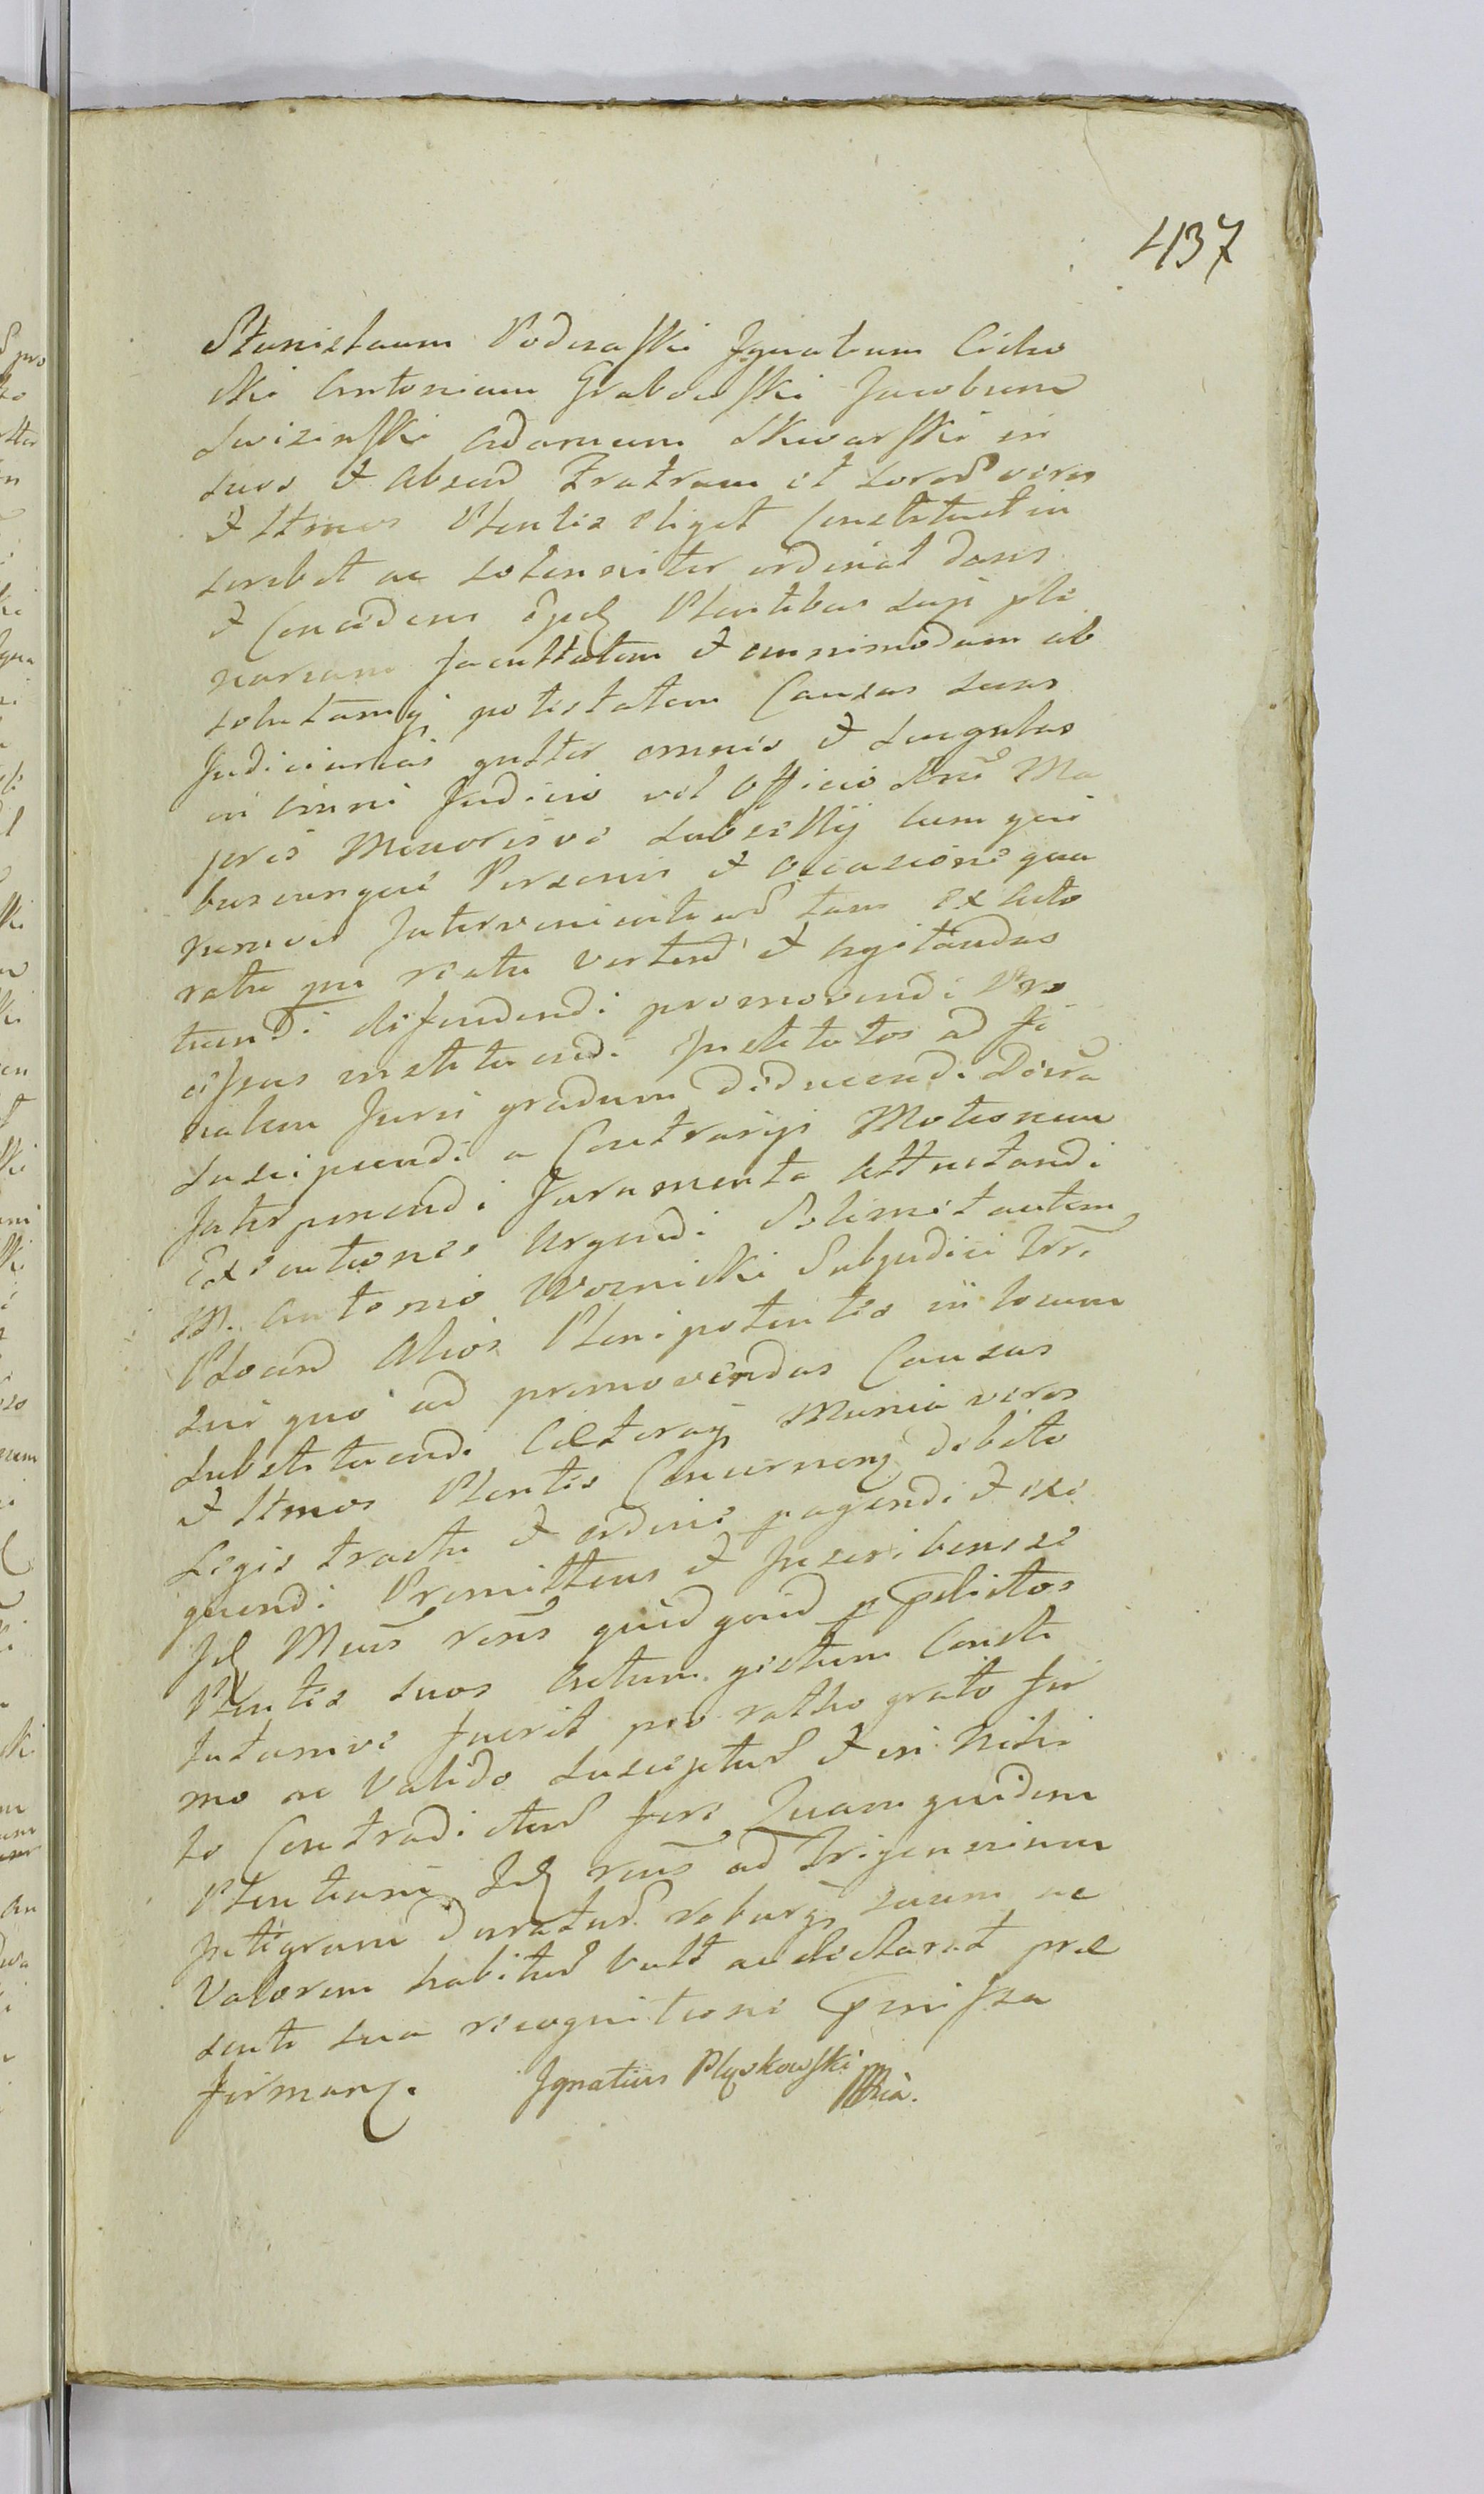 437
Stanislaum Podczaski Ignatium Cicho
cki Antonium Grabowski Jacobum
Swizinski Adamum Skwarski in
suos et Absend Fratrum et Soror veros
et Ltmos Plentes eliget Constituit in
scribet ac solenniter ordinat dans
et Concedens iisdq Plentibus suis ple
nariam facultatem et omnimodam ab
solutamq potestatem Causas suas
Judiciarias gnlter omnes et singulas
in omni Judicio vel Officio Regni Ma
joris Minorisve subsellij cum qui
buscunque Personis et occasione qua
rumvis Intervenientiad tam ex acto
ratu qm reatu vertend et agitandas
tuendi defendendi promovendi Pro
cessus instituendi Institutos ad fi
nalem Juris gradum deducendi Decreta
suscipiendi a Contrarijs Motionem
Interponendi Juramenta Attentandi
Executiones Urgendi Solimet autem
M. Antonio Woznicki Subjudici Trri
Plocen Alios Plenipotentes in locum
sui quo ad promovendas Causas
substituendi Cæteraq Munia veros
et Ltmos Plentes Concernen debito
Legis tractu et ordine pagendi et exe
quendi Promittens et Inscribens se
Idq Mcus rcns quidquid p pdictos
Plentes suos Actum gestum Consti
tutumve fuerit pro ratho grato fir
mo ac Valido suscepturū et in Nihi
lo Contradicturū fore Quam quidem
Plentiam Idq rcns ad Trigennium
integrum duraturū roburq suum ac
Valorem habiturū vult ac declarat præ
senti sua recognitione Pmissa
firman.
Ignatius Pląskowski
Mpria.